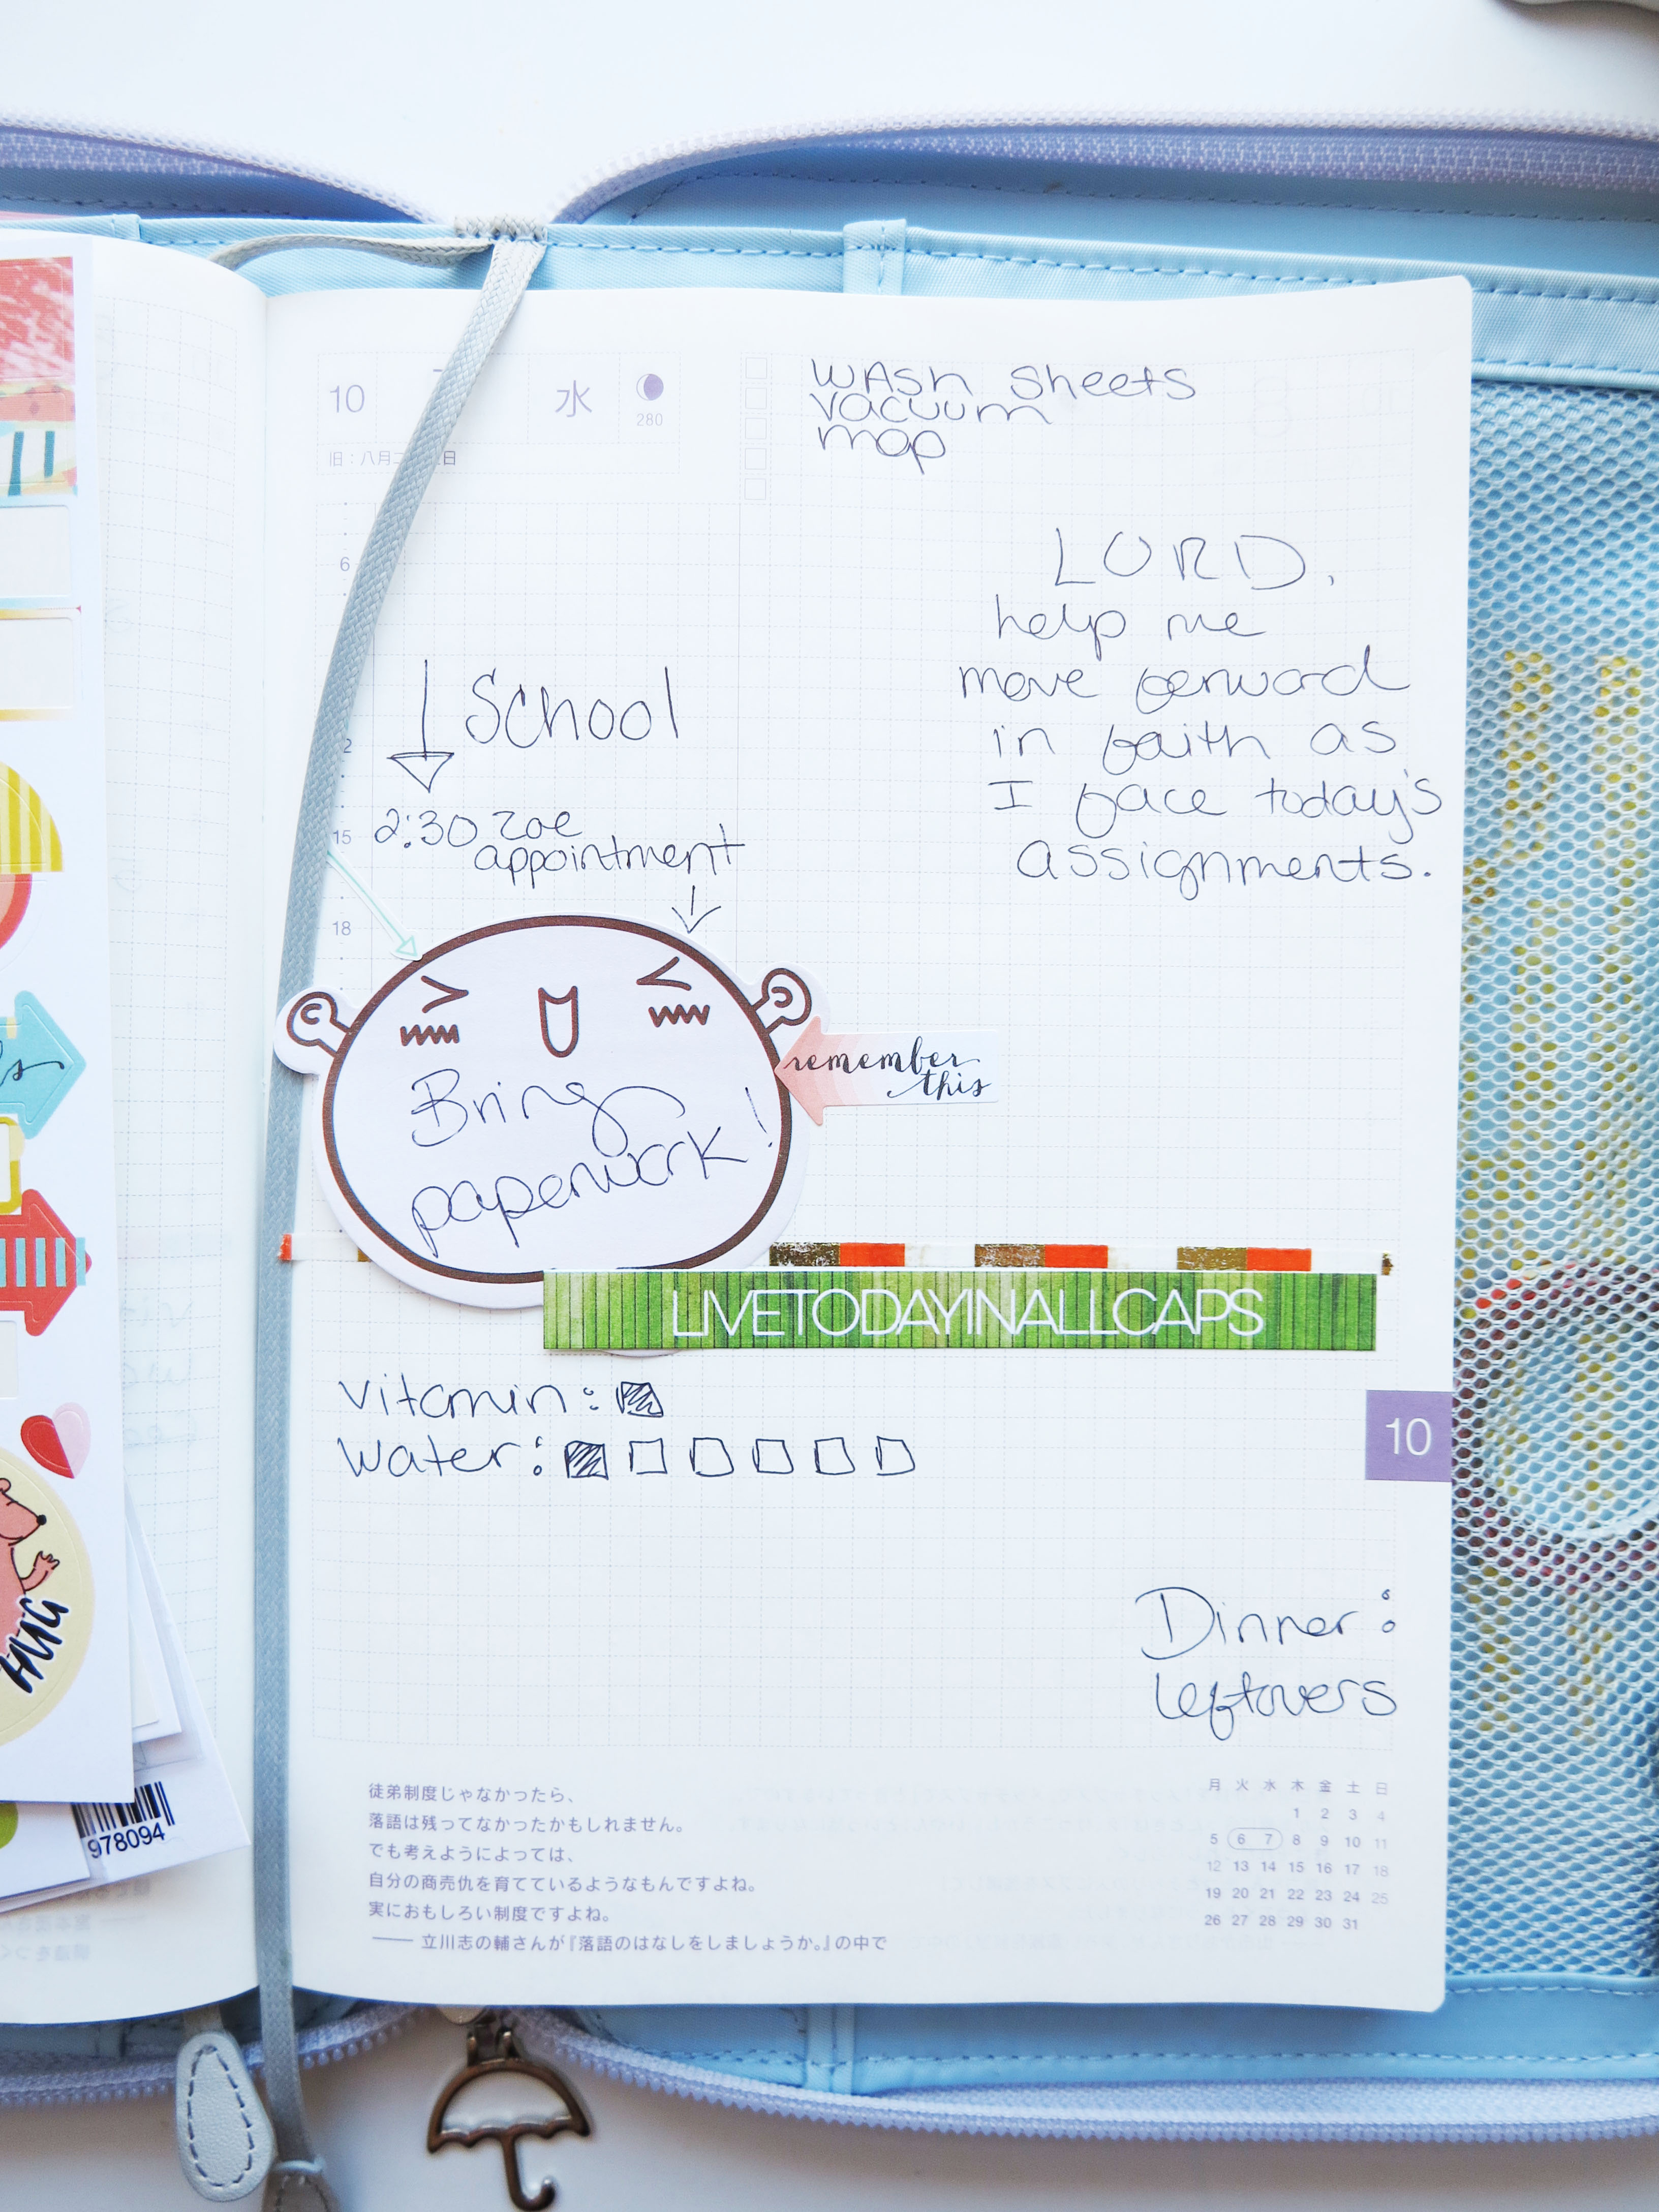 10
水
280
旧：八月
日
wash sheets
vacuum
mop
6
LORD,
help me
move forward
in faith as
I face today's
assignments.
School
2
2:30 Zoe
appointment
15
18
remember
this
Bring
paperwork!
LIVETODAYINALLCAPS
vitamin:
water:
10
Dinner:
leftovers
HUG
978094
徒弟制度じゃなかったら、
落語は残ってなかったかもしれません。
でも考えようによっては、
自分の商売仇を育てているようなもんですよね。
実におもしろい制度ですよね。
── 立川志の輔さんが『落語のはなしをしましょうか。』の中で
月 火 水 木 金 土 日
1 2 3 4
5 6 7 8 9 10 11
12 13 14 15 16 17 18
19 20 21 22 23 24 25
26 27 28 29 30 31